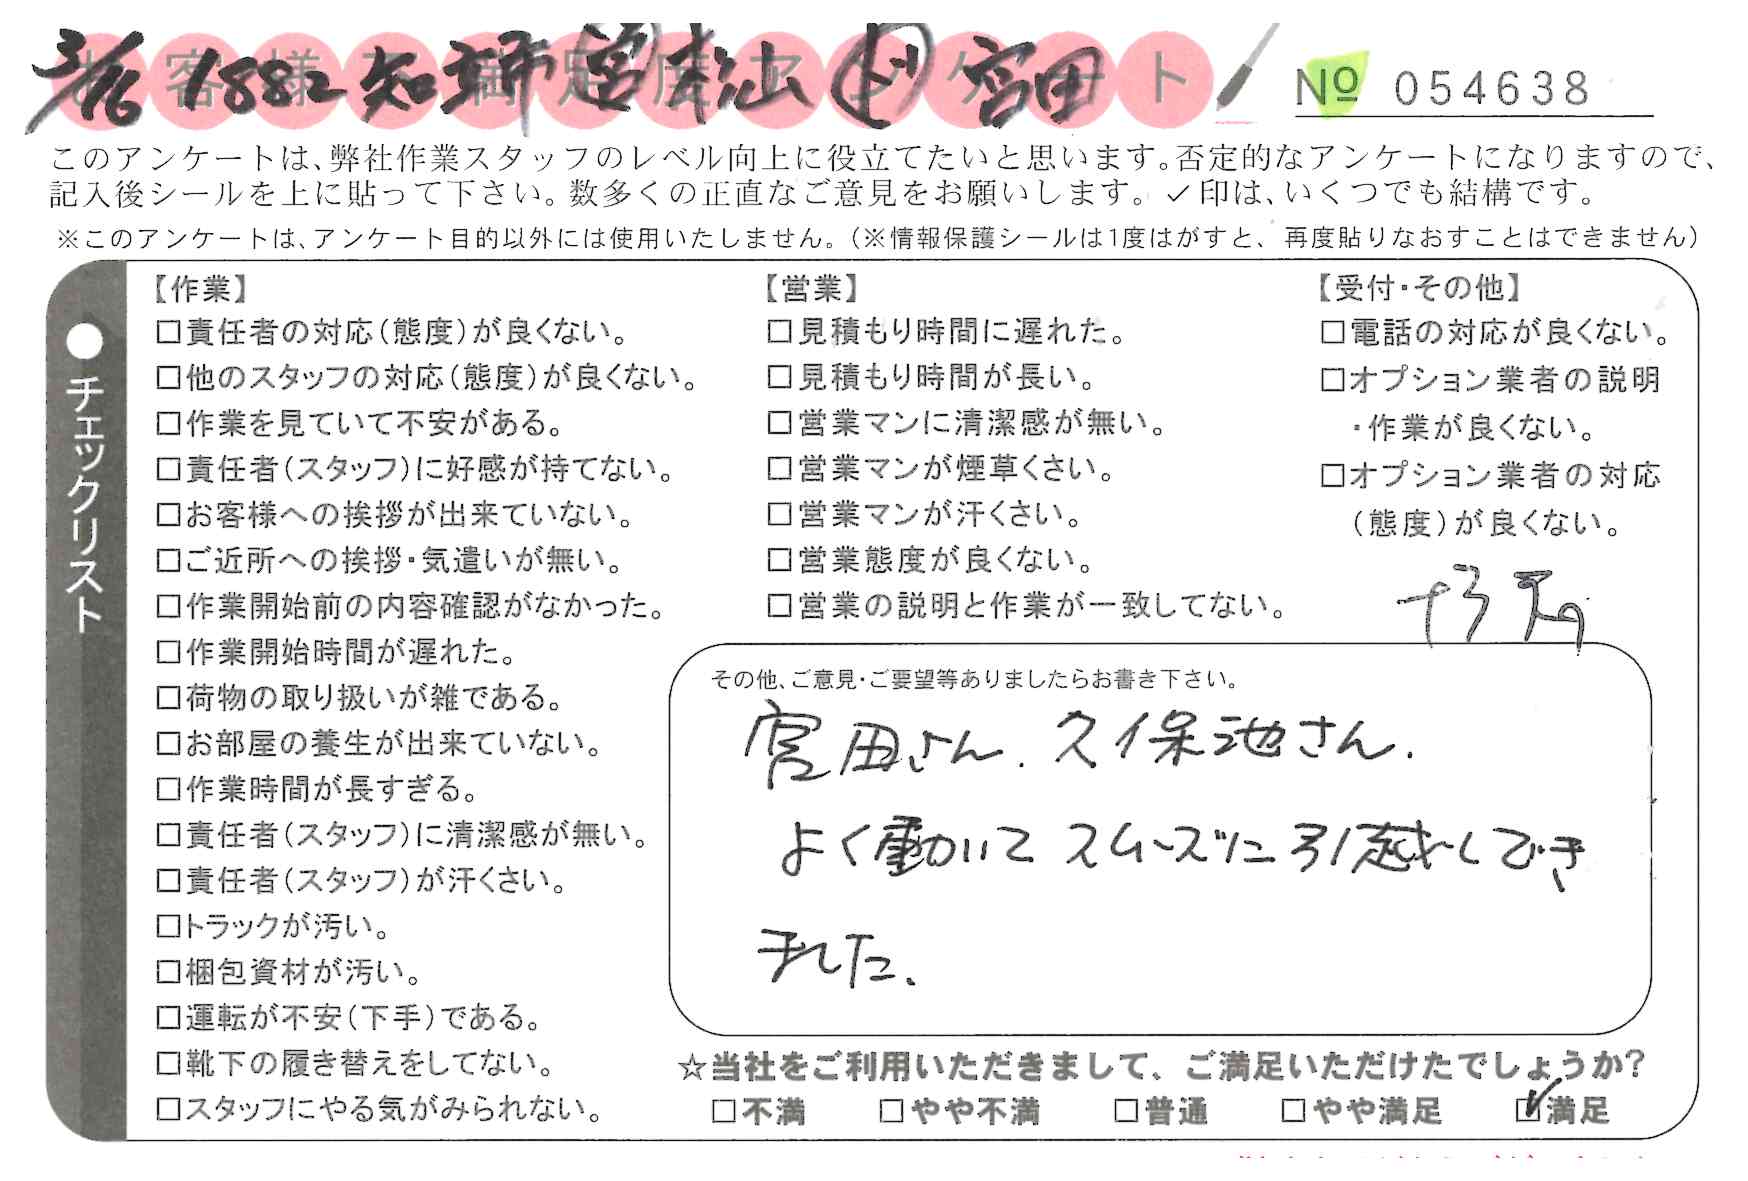 お客様不満足度アンケート
3/16 1882 知多 営 松山 宮田
№ 054638
このアンケートは、弊社作業スタッフのレベル向上に役立てたいと思います。否定的なアンケートになりますので、
記入後シールを上に貼って下さい。数多くの正直なご意見をお願いします。✓印は、いくつでも結構です。
※このアンケートは、アンケート目的以外には使用いたしません。（※情報保護シールは1度はがすと、再度貼りなおすことはできません）
●チェックリスト
【作業】
□責任者の対応（態度）が良くない。
□他のスタッフの対応（態度）が良くない。
□作業を見ていて不安がある。
□責任者（スタッフ）に好感が持てない。
□お客様への挨拶が出来ていない。
□ご近所への挨拶・気遣いが無い。
□作業開始前の内容確認がなかった。
□作業開始時間が遅れた。
□荷物の取り扱いが雑である。
□お部屋の養生が出来ていない。
□作業時間が長すぎる。
□責任者（スタッフ）に清潔感が無い。
□責任者（スタッフ）が汗くさい。
□トラックが汚い。
□梱包資材が汚い。
□運転が不安（下手）である。
□靴下の履き替えをしてない。
□スタッフにやる気がみられない。
【営業】
□見積もり時間に遅れた。
□見積もり時間が長い。
□営業マンに清潔感が無い。
□営業マンが煙草くさい。
□営業マンが汗くさい。
□営業態度が良くない。
□営業の説明と作業が一致してない。
【受付・その他】
□電話の対応が良くない。
□オプション業者の説明
・作業が良くない。
□オプション業者の対応
（態度）が良くない。
その他、ご意見・ご要望等ありましたらお書き下さい。
宮田さん、久保池さん、
よく動いて スムーズに引越しでき
ました。
☆当社をご利用いただきまして、ご満足いただけたでしょうか？
□不満 □やや不満 □普通 □やや満足 ☑満足